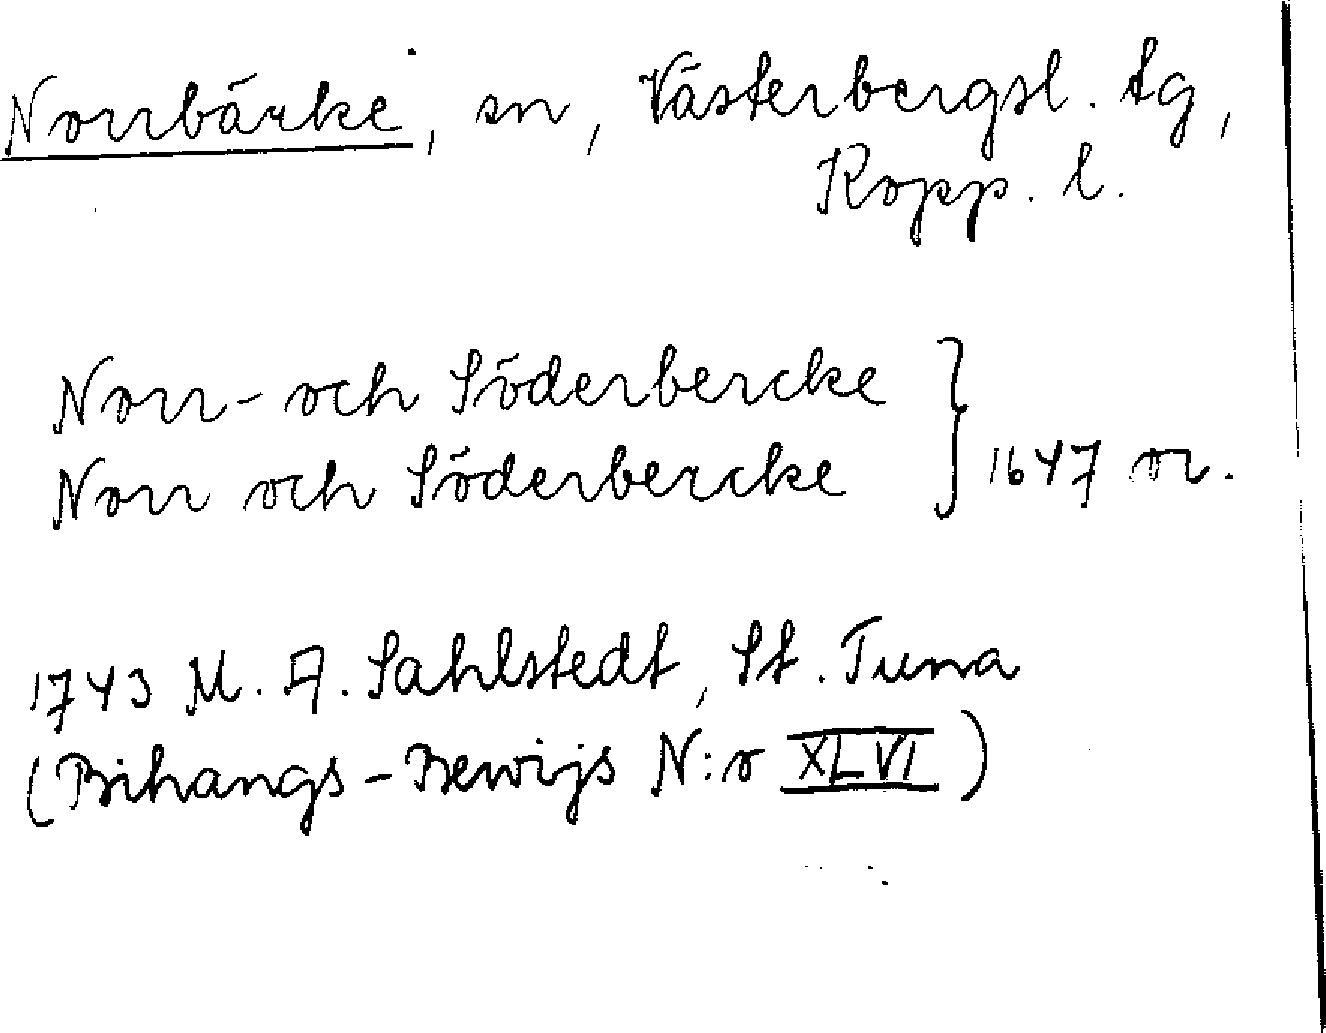 Norrbärke, sn, Västerbergsl. tg,
Kopp. l.
Norr- och Söderbercke
Norr och Söderbercke } 1647 or.
1743 M. A. Sahlstedt, St. Tuna
(Bihangs-Bewijs N:o XLVI)